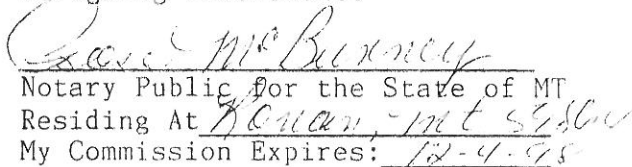 McBurney
Notary Public for the State of MT
Residing At Ronan, mt
My Commission Expires: 12-4-98